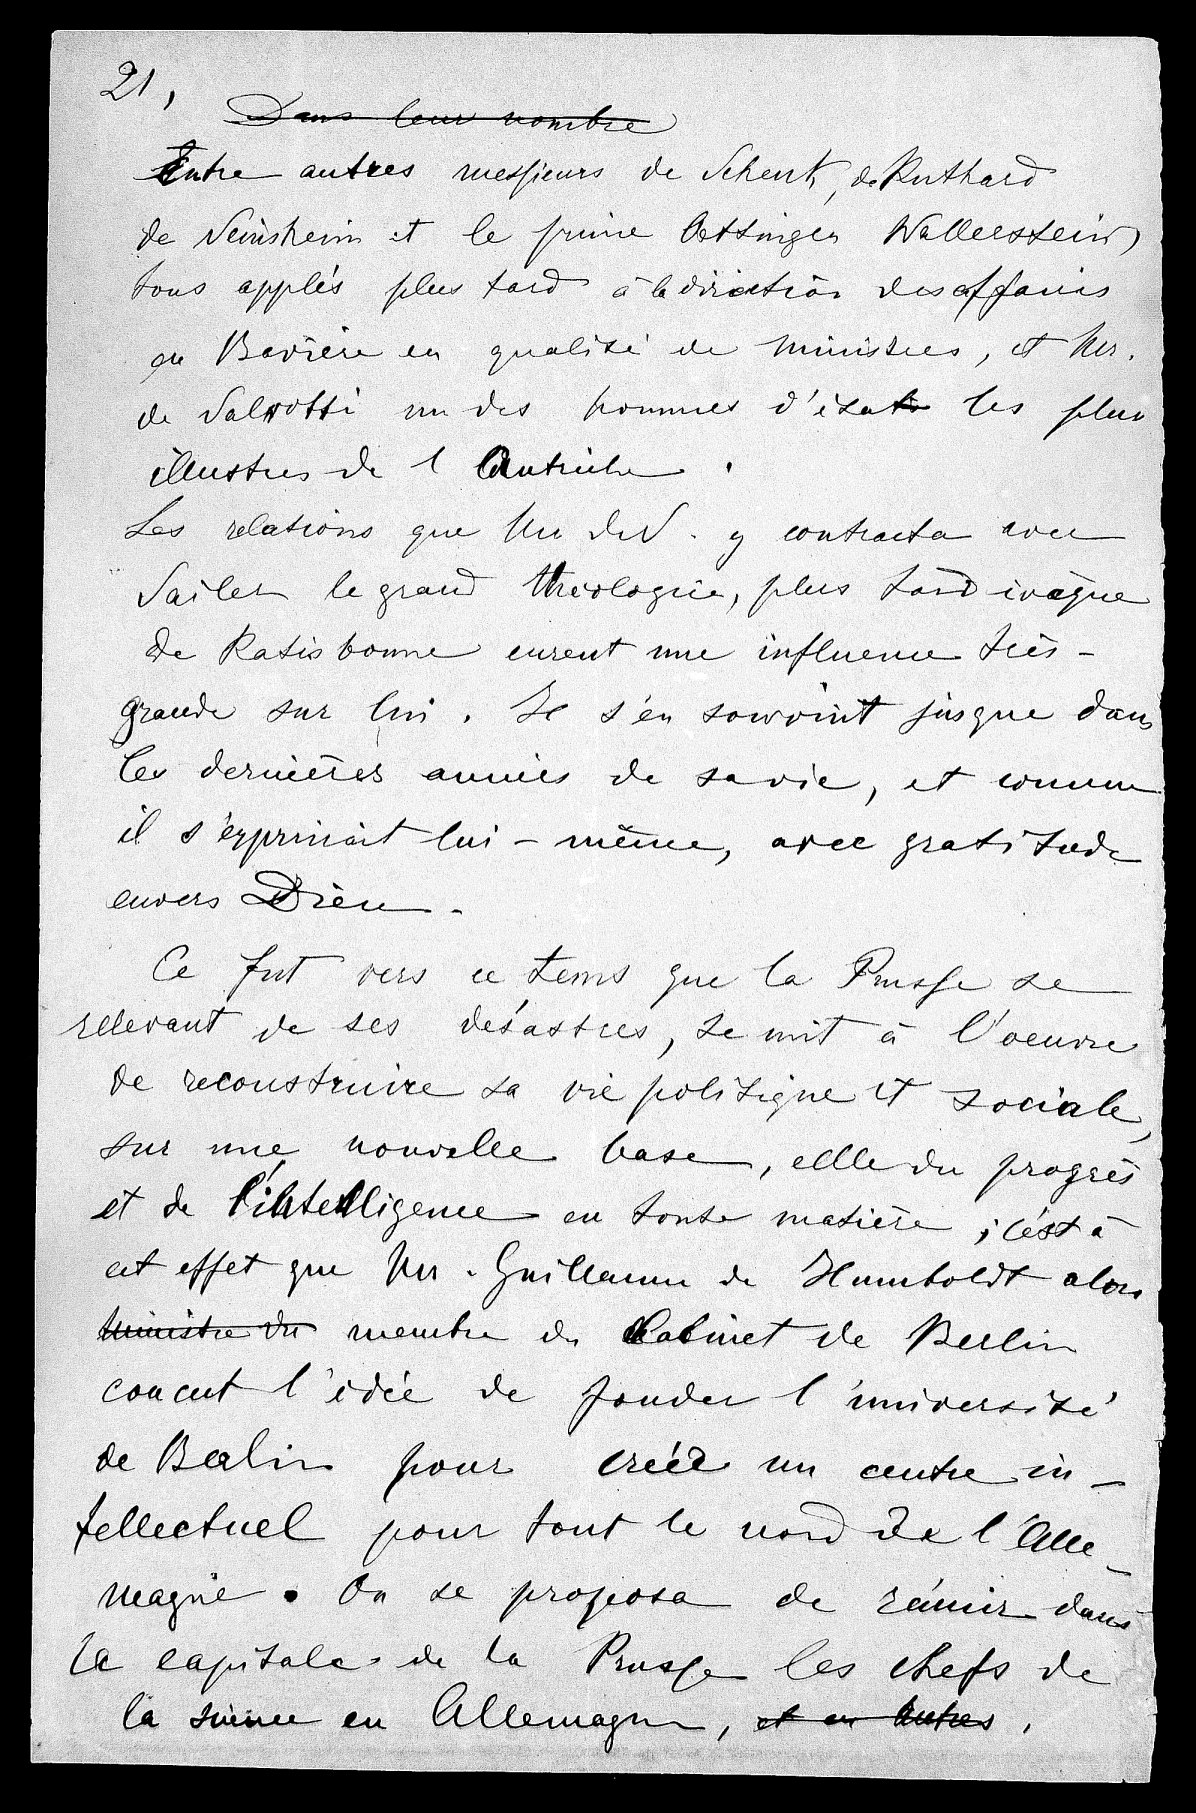 21,
Dans leur nombre
Entre autres messieurs de Schenk, de Ruthard
de Seinsheim et le prince Oettingen Wallerstein
tous applés plus tard à la direction des affaires
en Bavière en qualité de ministres, et Mr.
de Salvotti un des hommes d'état les plus
illustres de l Autriche.
Les relations que Mr de S. y contracta avec
Sailer le grand théologien, plus tard évèque
de Ratisbonne eurent une influence très-
grande sur lui. Il s'en souvint jusque dans
les dernières années de sa vie, et comme
il s'exprimait lui-même, avec gratitude
envers Dieu.
Ce fut vers ce tems que la Prusse se
relevant de ses désastres, se mit à l'oeuvre
de reconstruire sa vie politique et sociale,
sur une nouvelle base, celle du progrès
et de l'intelligence en toute matière; c'est à
cet effet que Mr. Guillaume de Humboldt alors
ministre du membre du Cabinet de Berlin
concut l'idée de fonder l'université
de Berlin pour créer un centre in-
tellectuel pour tout le nord de l'Alle-
magne. On se proposa de réunir dans
la capitale de la Prusse les chefs de
la science en Allemagne, et en autres.